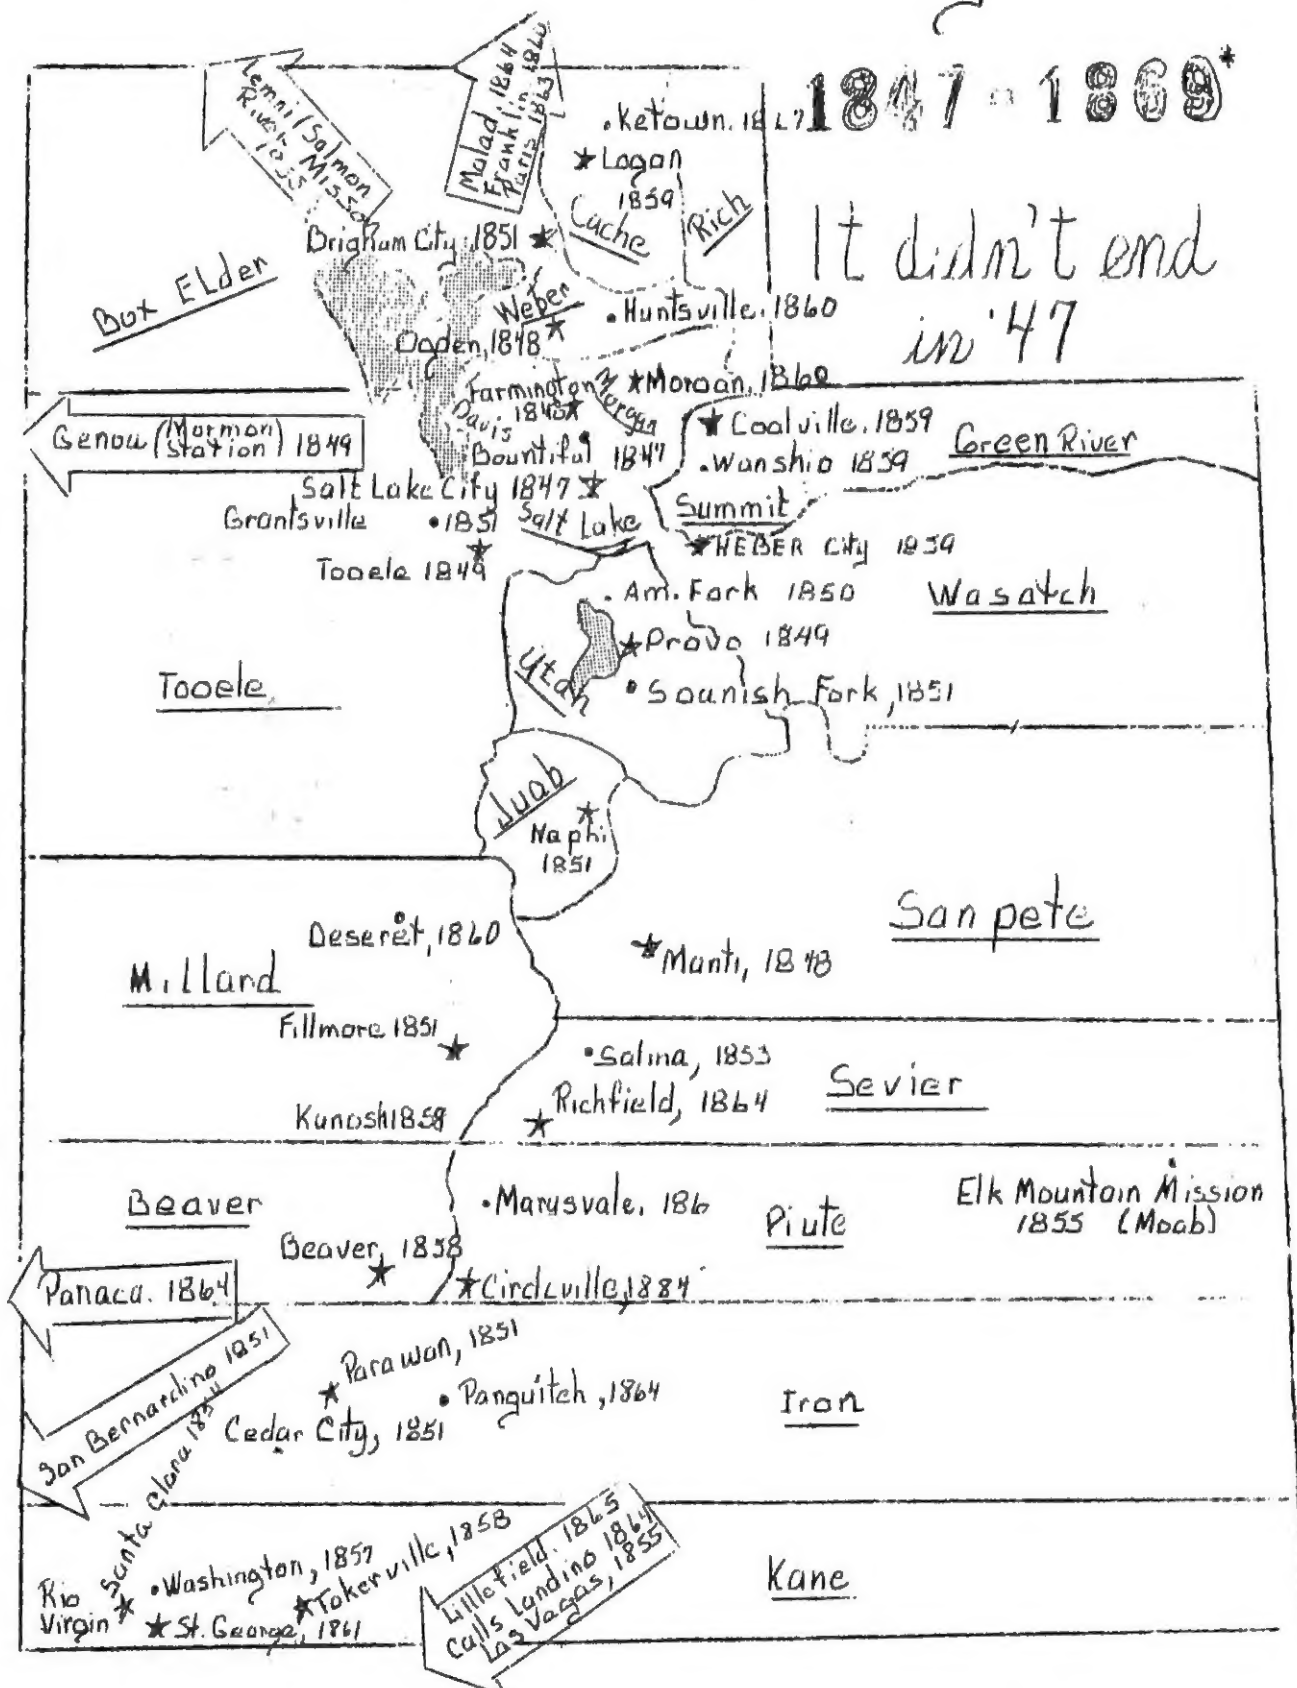 1847 - 1869*
It didn't end
in '47
Lemhi/Salmon
River Mission
1855
Malad, 1864
Franklin, 1860
Paris 1863
Ketown. 1867
Logan
1859
Cache
Rich
Brigham City, 1851
Box Elder
Weber
Huntsville, 1860
Ogden, 1848
Farmington
1848
Davis
Morgan
Morgan, 1860
Genoa (Mormon Station) 1849
Bountiful 1847
Coalville, 1859
Wanship 1859
Green River
Salt Lake City 1847
Grantsville 1851
Salt Lake
Summit
HEBER City 1859
Tooele 1849
Am. Fork 1850
Wasatch
Provo 1849
Utah
Spanish Fork, 1851
Tooele
Juab
Naphi
1851
Deseret, 1860
Sanpete
Manti, 1848
Millard
Fillmore 1851
Salina, 1853
Richfield, 1864
Sevier
Kanosh 1859
Beaver
Marysvale, 186
Piute
Elk Mountain Mission
1855 (Moab)
Beaver, 1858
Circleville, 1884
Panaca. 1864
San Bernardino 1851
Parawan, 1851
Panguitch, 1864
Iron
Cedar City, 1851
Santa Clara
Washington, 1857
Tokerville, 1858
Rio
Virgin
St. George, 1861
Littlefield. 1865
Calls Landing 1864
Las Vagas, 1855
Kane